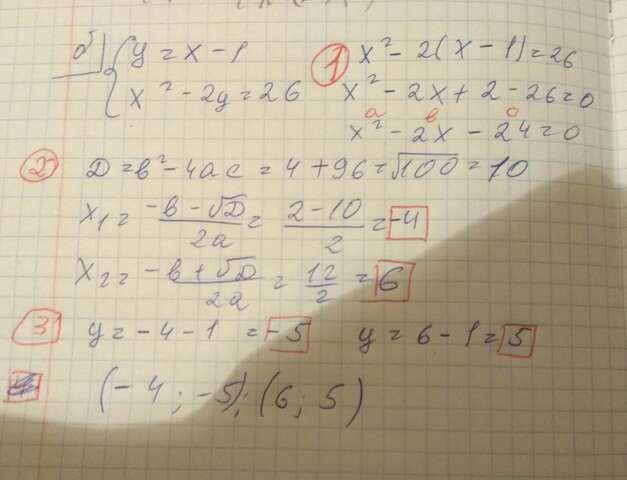 б) { y = x - 1
x² - 2y = 26
1 x² - 2(x - 1) = 26
x² - 2x + 2 - 26 = 0
a в c
x² - 2x - 24 = 0
2 D = в² - 4ac = 4 + 96 = √100 = 10
x₁ = (-в - √D)/2a = (2 - 10)/2 = -4
x₂ = (-в + √D)/2a = 12/2 = 6
3 y = -4 - 1 = -5 y = 6 - 1 = 5
(-4; -5); (6; 5)